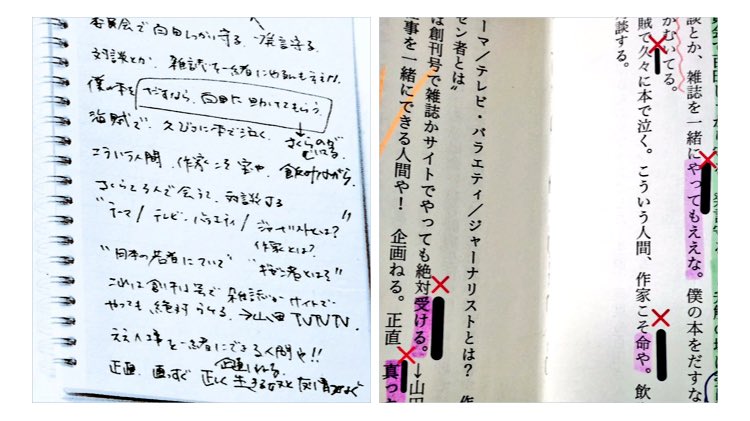 委員会で百田しっかり守る。発言守る
対談とか、雑誌を一緒にやるんもええな!!
僕の本をだすなら、百田に助けてもらう
→さくらの方がむいてる
海賊で、久びさに本で泣く。
こういう人間、作家こそ宝や、飯
さくらと3人で会うて、対談する
"テーマ/テレビ・バラエティ/ジャーナリストとは?"
作家とは?
"日本の若者について"
これは創刊号で雑誌かサイトで
やっても絶対うける。→山田
事を一緒にできる人間や!!
企画ねる。
正直、直っすぐ正しく生きる
談とか、雑誌を一緒にやってもええな。僕の本をだすな
がむいてる。
賊で久々に本で泣く。こういう人間、作家こそ命や。飲
談する。
ーマ/テレビ・バラエティ/ジャーナリストとは? 作
セン者とは"
は創刊号で雑誌かサイトでやっても絶対受ける。→山田
事を一緒にできる人間や! 企画ねる。正直 真っ